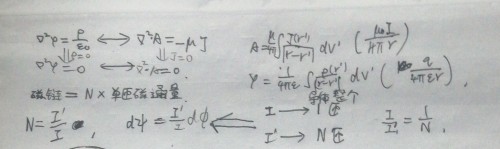 ∇²φ = ρ/ε₀ ⟷ ∇²A = -μJ
⇓ρ=0 ⇓J=0
∇²φ = 0 ⟷ ∇²A = 0
A = μ/4π ∫ J(r')/|r-r'| dv' (μ₀I/4πr)
φ = 1/4πε ∫ ρ(r')/|r-r'| dv' (q/4πεr)
磁链 = N × 单匝磁通量
N = I'/I , dψ = I'/I dϕ ⟸
I → 1匝
I' → N匝
I/I' = 1/N ,